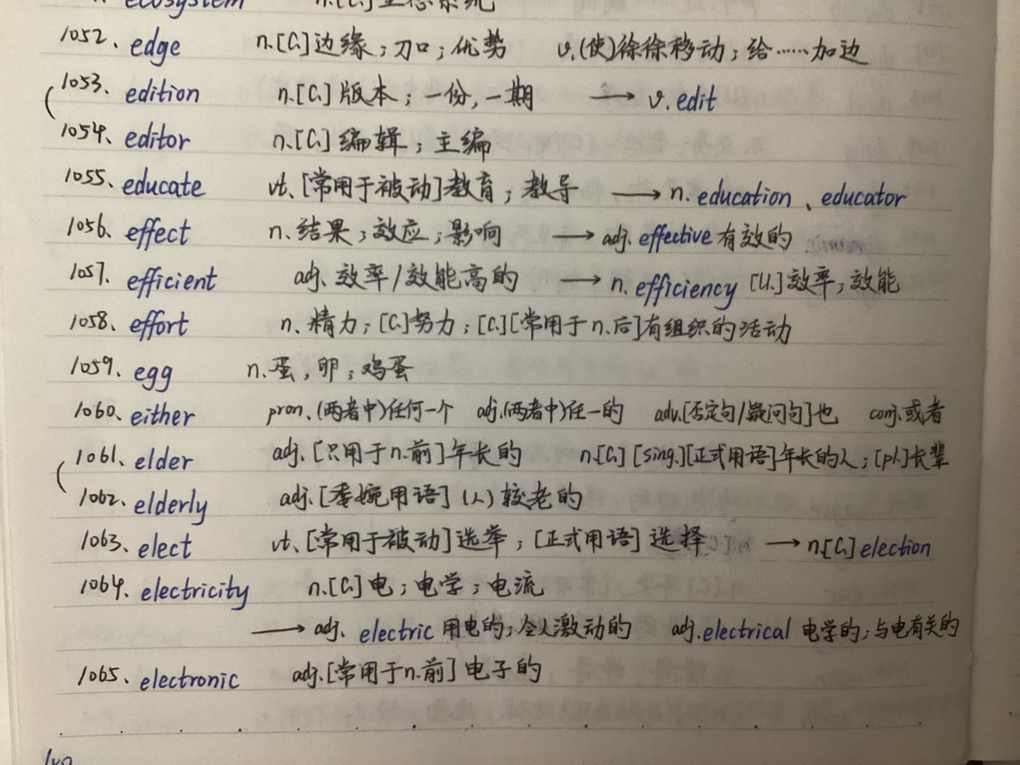 ecosystem n.[C.]生态系统
1052、edge n.[C.]边缘；刀口；优势 v.(使)徐徐移动；给……加边
1053、edition n.[C.]版本；一份，一期 → v.edit
1054、editor n.[C.]编辑；主编
1055、educate vt.[常用于被动]教育；教导 → n.education、educator
1056、effect n.结果；效应；影响 → adj.effective有效的
1057、efficient adj.效率/效能高的 → n.efficiency [U.]效率；效能
1058、effort n.精力；[C.]努力；[C.][常用于n.后]有组织的活动
1059、egg n.蛋，卵；鸡蛋
1060、either pron.(两者中)任何一个 adj.(两者中)任一的 adv.[否定句/疑问句]也 conj.或者
1061、elder adj.[只用于n.前]年长的 n.[C.][sing.][正式用语]年长的人；[pl.]长辈
1062、elderly adj.[委婉用语](人)较老的
1063、elect vt.[常用于被动]选举；[正式用语]选择 → n.[C.]election
1064、electricity n.[C.]电；电学；电流
→ adj.electric用电的；令人激动的 adj.electrical电学的；与电有关的
1065、electronic adj.[常用于n.前]电子的